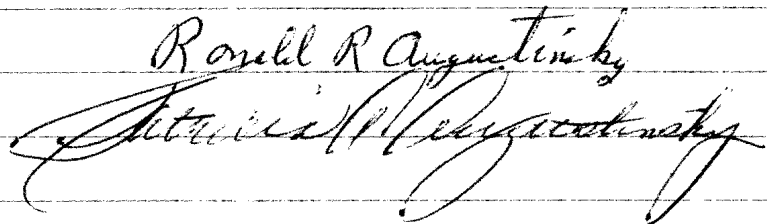 Ronald R Augustinsky
Patricia A Augustinsky